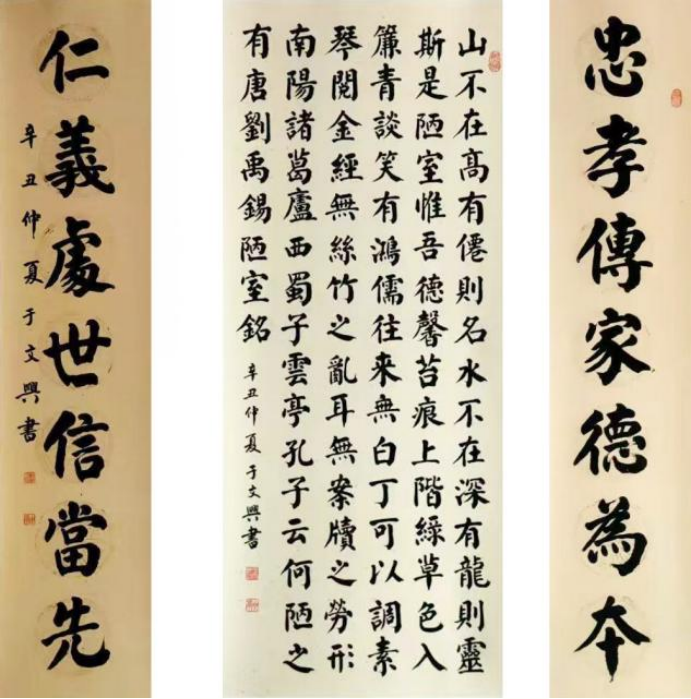 忠孝傳家德為本
山不在高有僊則名水不在深有龍則靈
斯是陋室惟吾德馨苔痕上階綠草色入
簾青談笑有鴻儒往来無白丁可以調素
琴閱金經無絲竹之亂耳無案牘之勞形
南陽諸葛廬西蜀子雲亭孔子云何陋之
有唐劉禹錫陋室銘
辛丑仲夏于文興書
仁義處世信當先
辛丑仲夏于文興書